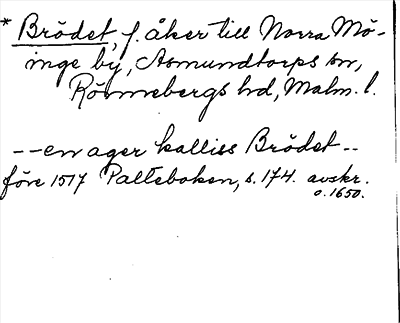 * Brödet, f. åker till Norra Mö-
inge by, Asmundtorps sn,
Rönnebergs hd, Malm. l.
--en ager kalliss Brödet--
före 1517 Palteboken, s. 174. avskr.
o. 1650.